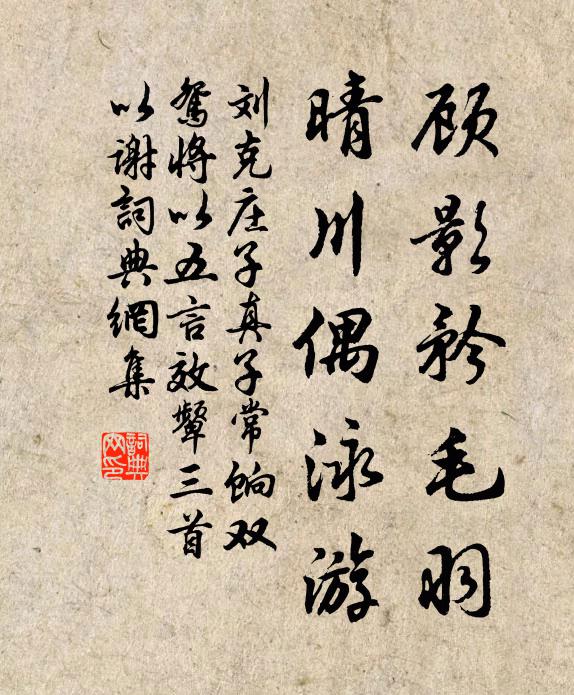 顾影矜毛羽
晴川偶泳游
刘克庄子真子常饷双
鸳将以五言效颦三首
以谢詞典網集
詞典网印